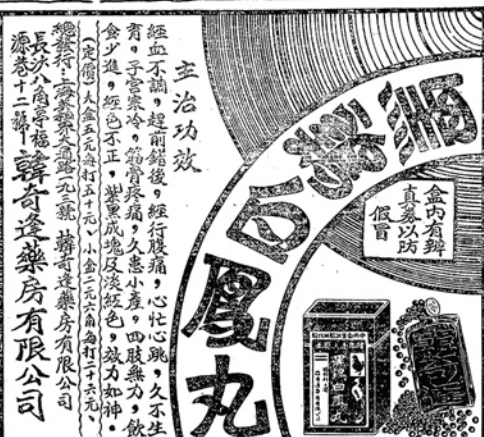 烏雞白鳳丸
盒內有辨
真券以防
假冒
主治功效
經血不調，趕前錯後，經行腹痛，心忙心跳，久不生
育，子宮寒冷，筋骨疼痛，久患小產，四肢無力，飲
食少進，經色不正，紫黑成塊及淡紅色，效力如神。
（定價）大盒五元每打五十元、小盒二元六角每打二十六元、
總發行：上海英界大通路一九三號 韓奇逢藥房有限公司
長沙八角亭福
源巷十二號
韓奇逢藥房有限公司
白鳳丸
韓奇逢